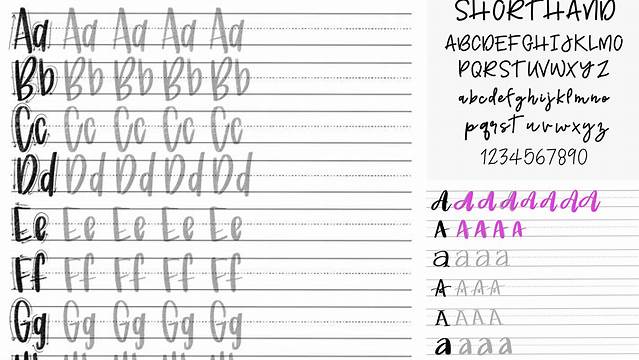 Aa Aa Aa Aa Aa
Bb Bb Bb Bb Bb
Cc Cc Cc Cc Cc
Dd Dd Dd Dd Dd
Ee Ee Ee Ee Ee
Ff Ff Ff Ff Ff
Gg Gg Gg Gg Gg
SHORTHAND
ABCDEFGHIJKLMO
PQRSTUVWXYZ
abcdefghijklmno
pqrstuvwxyz
1234567890
A AAAAAAA
A AAAA
a aaa
A AAA
A AAA
a aaa